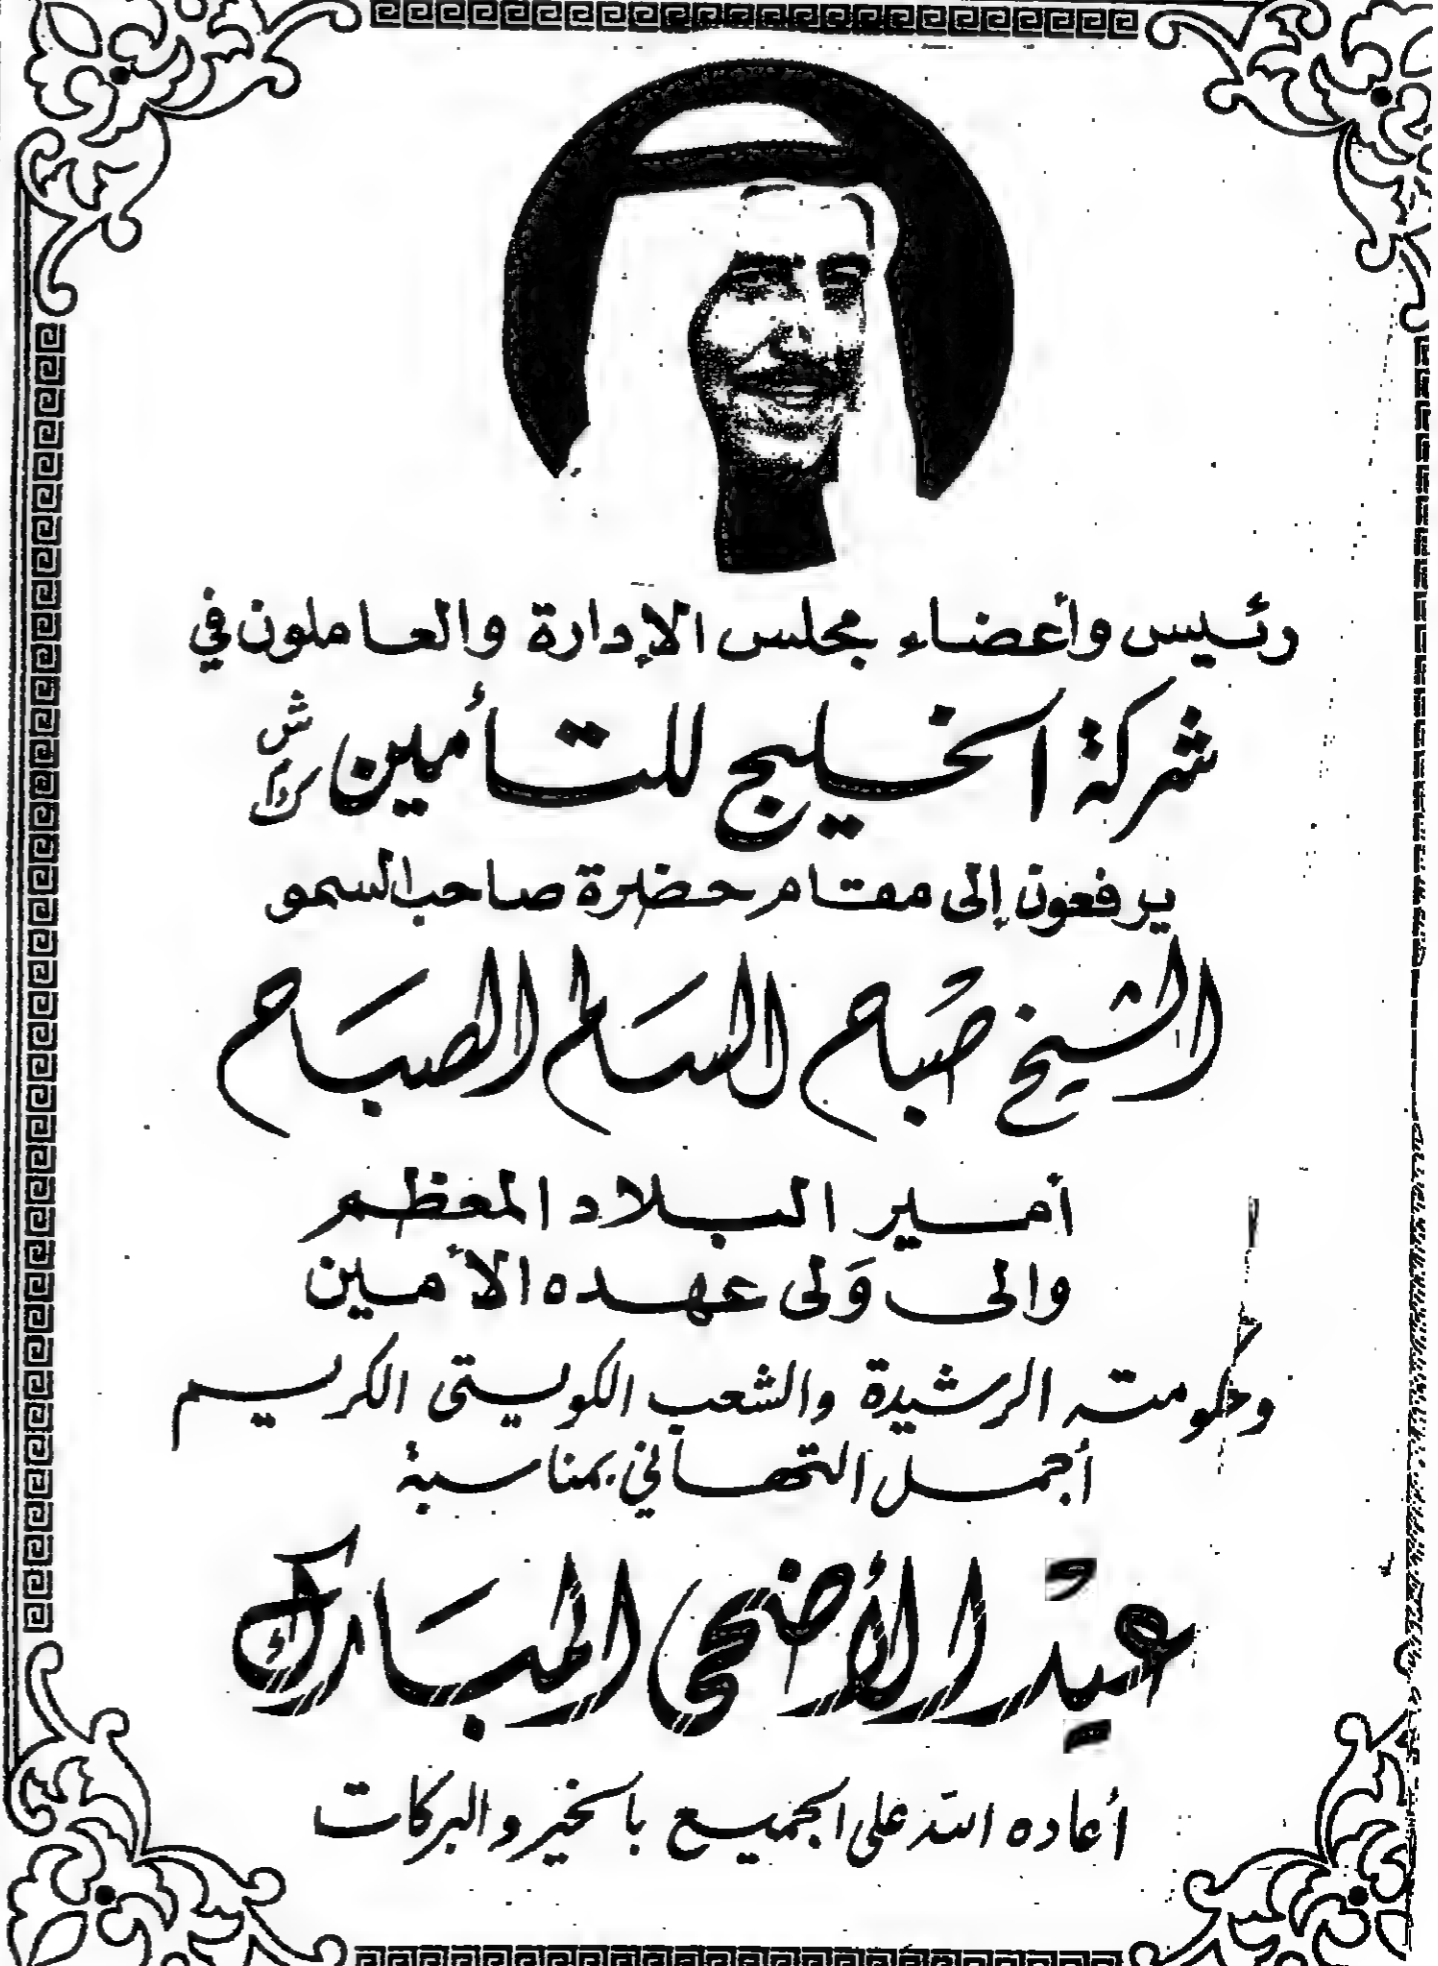 رئيس وأعضاء مجلس الإدارة والعاملون في
شركة الخليج للتأمين ش.م.ك
يرفعون إلى مقام حضرة صاحب السمو
الشيخ صَباح السَالم الصبَاح
أمير البلاد المعظم
والى وَلى عهده الأمين
وحكومته الرشيدة والشعب الكويتى الكريم
أجمل التهاني بمناسبة
عيد الأضحى المبَارك
أعاده الله على الجميع بالخير والبركات